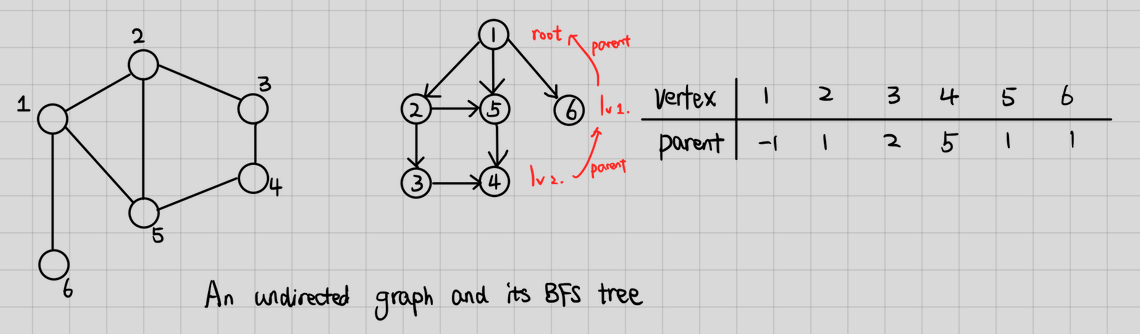 2
1
3
4
5
6
1
2
5
6
3
4
root
parent
lv1.
lv2.
parent
vertex 1 2 3 4 5 6
parent -1 1 2 5 1 1
An undirected graph and its BFS tree